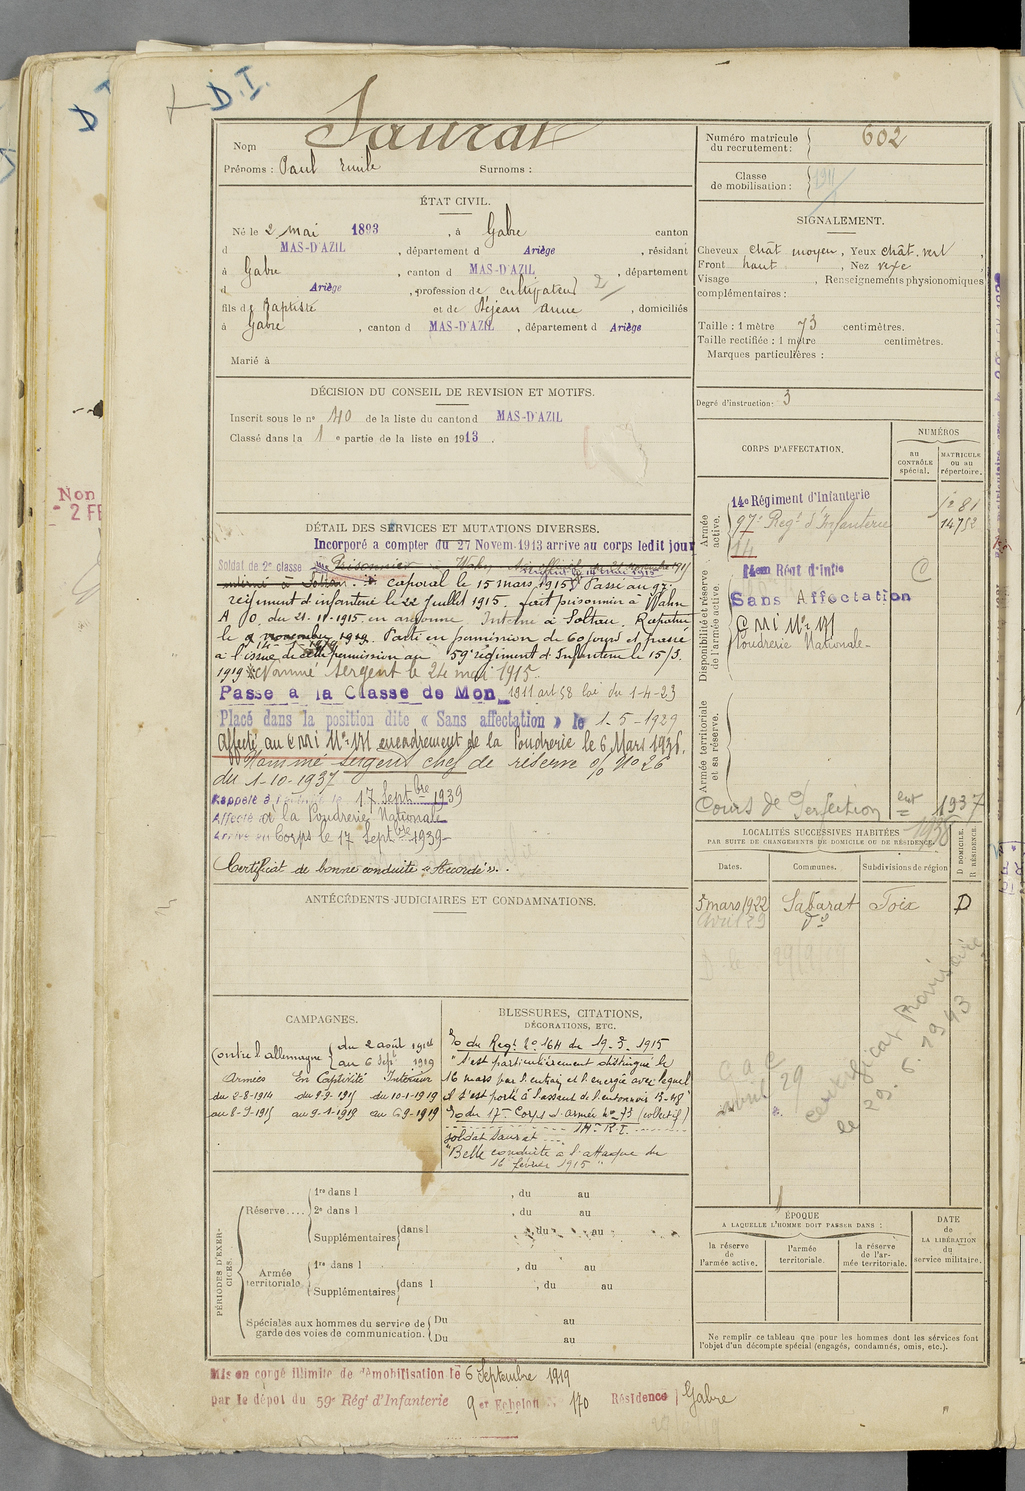 D.I.
Nom Saurat
Prénoms : Paul Emile Surnoms :
ÉTAT CIVIL.
Né le 2 mai 1893, à Gabre canton
d MAS-D'AZIL, département d Ariège, résidant
à Gabre, canton d MAS-D'AZIL, département
d Ariège, profession de cultivateur 2
fils de Baptiste et de Déjean Anne, domiciliés
à Gabre, canton d MAS-D'AZIL, département d Ariège
Marié à
DÉCISION DU CONSEIL DE REVISION ET MOTIFS.
Inscrit sous le nº 40 de la liste du canton d MAS-D'AZIL
Classé dans la 1 e partie de la liste en 1913.
DÉTAIL DES SERVICES ET MUTATIONS DIVERSES.
Incorporé a compter du 27 Novem. 1913 arrive au corps ledit jour
Soldat de 2e classe Prisonnier à Wahn
interné à Soltau. caporal le 15 mars 1915 Passé au 97e
régiment d'infanterie le 22 Juillet 1915. fait prisonnier à Wahn
A O. du 21-11-1915, en argonne Interné à Soltau. Rapatrié
le 9 1919. Parti en permission de 60 jours et passé
à l'issue de cette permission au 59e régiment d'Infanterie le 15/3
1919 Nommé Sergent le 24 mai 1915
Passé a la Classe de Mon 1911 art 58 loi du 1-4-23
Placé dans la position dite « Sans affectation » le 1-5-1929
Affecté au C M I Nº 171 de la Poudrerie le 6 Mars 1936.
Nommé sergent chef de réserve o/ Nº 26
du 1-10-1937
Rappelé à 17 Septbre 1939
Affecté à la Poudrerie Nationale
Arrivé au Corps le 17 Septbre 1939-
Certificat de bonne conduite « Accordé ».
ANTÉCÉDENTS JUDICIAIRES ET CONDAMNATIONS.
CAMPAGNES.
Contre l'allemagne du 2 août 1914
au 6 Sept 1919
Armées En Captivité Intérieur
du 2-8-1914 du 9-9-1915 du 10-1-1919
au 8-9-1915 au 9-1-1919 au 6-9-1919
BLESSURES, CITATIONS,
DÉCORATIONS, ETC.
O du Regt nº 164 du 19.3.1915
"S'est particulièrement distingué le
16 mars par l'entrain et l'énergie avec lequel
il s'est porté à l'assaut de l'entonnoir
O du 17e Corps d'armée nº 73 (collectif)
14e R.I.
soldat Saurat
"Belle conduite à l'attaque du
16 février 1915"
PÉRIODES D'EXERCICES.
Réserve.... 1re dans l , du au
2e dans l , du au
Supplémentaires dans l , du au
Armée territoriale. 1re dans l , du au
Supplémentaires dans l , du au
Spéciales aux hommes du service de Du au
garde des voies de communication. Du au
Mis en congé illimité de démobilisation le 6 Septembre 1919
par le dépôt du 59e Régt d'Infanterie 9 er Echelon 170 Résidence Gabre
Numéro matricule du recrutement : 602
Classe de mobilisation : 1911
SIGNALEMENT.
Cheveux chât moyen, Yeux chât. vert,
Front haut, Nez vexe
Visage , Renseignements physionomiques
complémentaires :
Taille : 1 mètre 73 centimètres.
Taille rectifiée : 1 mètre centimètres.
Marques particulières :
Degré d'instruction : 3
CORPS D'AFFECTATION.
NUMÉROS
au CONTRÔLE spécial.
MATRICULE ou au répertoire.
Armée active.
14e Régiment d'Infanterie 1281
97e Regt d'Infanterie 14752
14
Disponibilité et réserve de l'armée active.
14eme Régt d'Infie C
Sans Affectation
C M I Nº 171
Poudrerie Nationale-
Armée territoriale et sa réserve.
Cours de Perfection 1937
1938
LOCALITÉS SUCCESSIVES HABITÉES
PAR SUITE DE CHANGEMENTS DE DOMICILE OU DE RÉSIDENCE.
Dates. Communes. Subdivisions de région
D DOMICILE.
R RÉSIDENCE.
5 mars 1922 Sabarat Foix D
Avril 29 dº
C a C
avril 29
certificat Provisoire
le 29.6.1943
ÉPOQUE
A LAQUELLE L'HOMME DOIT PASSER DANS :
la réserve de l'armée active.
l'armée territoriale.
la réserve de l'armée territoriale.
DATE de LA LIBÉRATION du service militaire.
Ne remplir ce tableau que pour les hommes dont les services font
l'objet d'un décompte spécial (engagés, condamnés, omis, etc.).
Non
- 2 FE